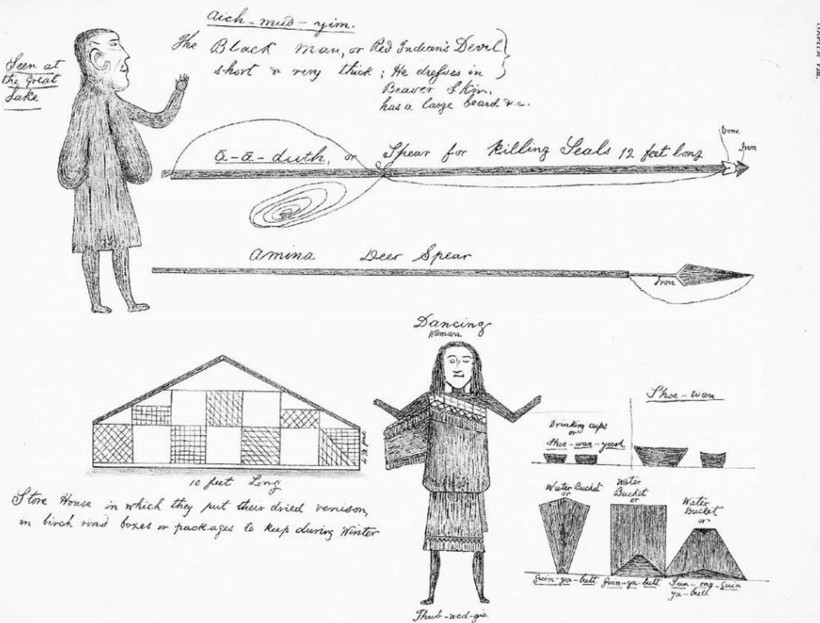 Aich-mud-yim.
The Black man, or Red Indian's Devil
short & very thick; He dresses in
Beaver Skin,
has a large beard &c.
Seen at
the Great
Lake
a-a-duth, or Spear for Killing Seals 12 feet long
bone
Iron
Amina Deer Spear
Iron
Dancing
Woman
10 feet Long
Store House in which they put their dried venison,
in birch rind boxes or packages to keep during Winter
Thub-wed-gie
Shoe-wan
Drinking cups
or
Shoe-wan-yeesh
Water Bucket
or
Guin-ya-butt
Water
Bucket
or
Guin-ya-butt
Water
Bucket
or
Sun-ong-guin
ya-butt